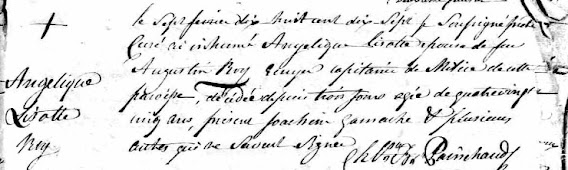 le Sept fevrier dix huit cent dix Sept je Soussigné prêtre
Curé ai inhumé Angelique Lisotte epouse de feu
Augustin Roy ecuyer capitaine de Milice de cette
paroisse, décédée depuis trois jours agée de quatrevingt
cinq ans, présens Joachim Gamache & plusieurs
autres qui ne Savent Signer
Painchaud
Angelique
Lisotte
Roy